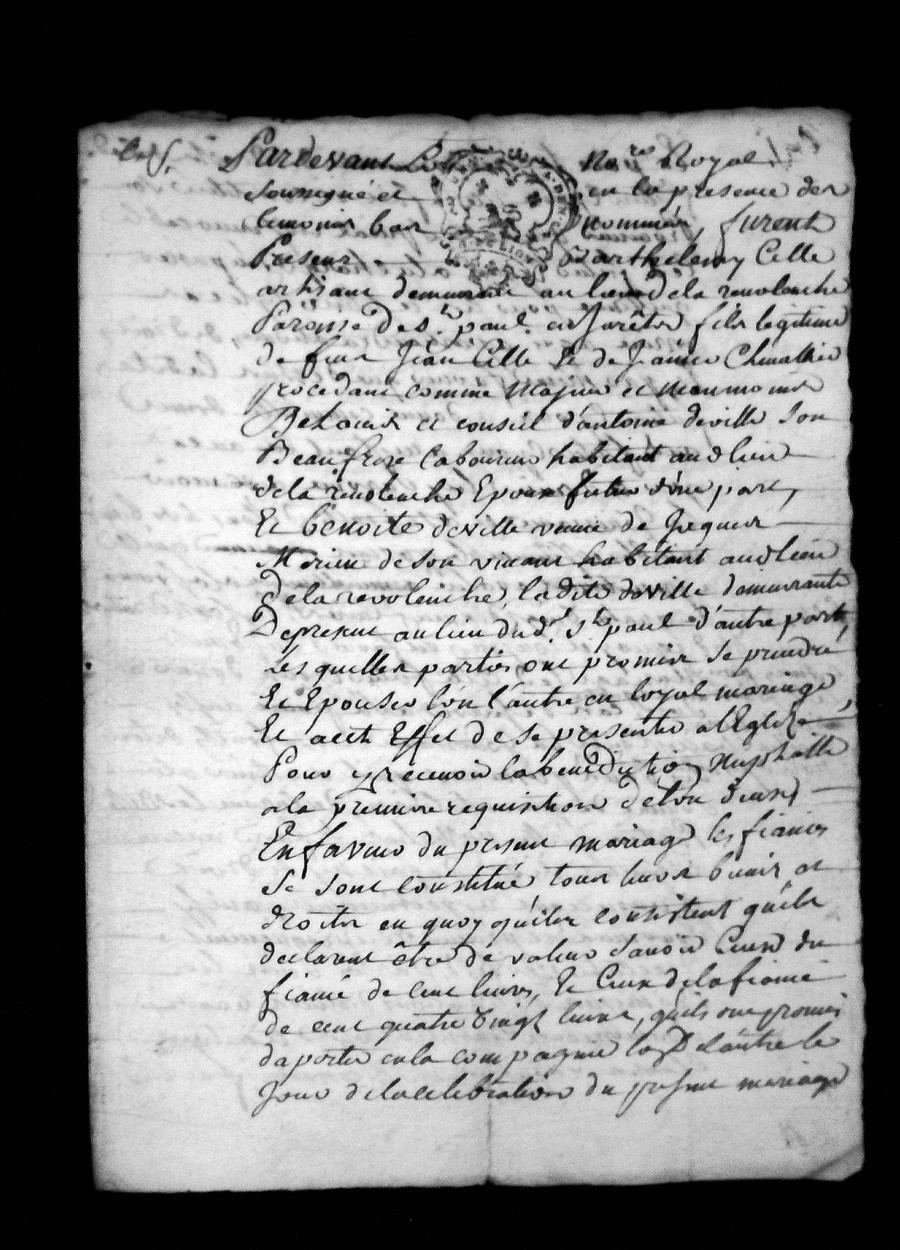 Pardevant Le No.re Royal
soussigné et en la presence des
temoins bas nommés, furent
Presens Barthelemy Celle
artisant demeurant au lieu dela revolanche
Paroisse de S.t paul en Jarêts fils legitime
de feus Jean Celle & de Jeanne
procedant comme Majeur et neanmoins
De L'avis et conseil d'antoine deville son
Beaufrere laboureur habitant aud lieu
dela revolanche Epoux futur d'une part,
Et benoite deville veuve de Jacques
de son vivant habitant aud lieu
Dela revolenche, ladite deville demeurante
Depresent au lieu dud. S.t paul d'autre part
Les quelles parties ont promis se prendre
Et Epouser l'un l'autre en loyal mariage
Et a cet Effet de se presenter a l'Eglize
Pour y recevoir la benediction Nuptialle
a la premiere requisition de l'un deux,
En faveur du present mariage les fiancés
se sont constitué tous leurs biens et
droits en quoy qu'ils consistent qu'ils
declarent être de valeur savoir Ceux du
fiancé de cent livres, Et Ceux dela fiancée
de cent quatre vingt livres, qu'ils ont promis
daporter en la compagnie l'un L'autre le
Jour de la celebration du present mariage